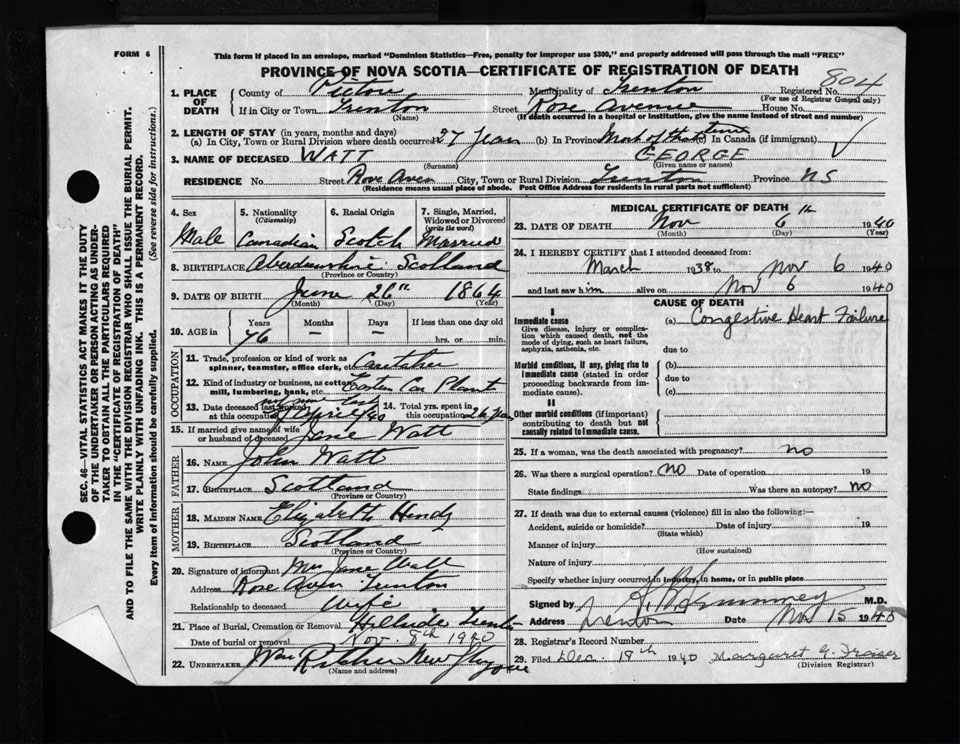 FORM 6
This form if placed in an envelope, marked "Dominion Statistics—Free, penalty for improper use $300," and properly addressed will pass through the mail "FREE"
PROVINCE OF NOVA SCOTIA—CERTIFICATE OF REGISTRATION OF DEATH
804
1. PLACE OF DEATH County of Pictou Municipality of Trenton Registered No.
(For use of Registrar General only)
If in City or Town Trenton Street Rose Avenue House No.
(Name) (If death occurred in a hospital or institution, give the name instead of street and number)
2. LENGTH OF STAY (in years, months and days)
(a) In City, Town or Rural Division where death occurred 27 years (b) In Province Most of the time (c) In Canada (if immigrant)
3. NAME OF DECEASED WATT GEORGE
(Surname) (Given name or names)
RESIDENCE No. Street Rose Aven City, Town or Rural Division Trenton Province NS
(Residence means usual place of abode. Post Office Address for residents in rural parts not sufficient)
4. Sex Male
5. Nationality (Citizenship) Canadian
6. Racial Origin Scotch
7. Single, Married, Widowed or Divorced (write the word) Married
8. BIRTHPLACE Aberdeenshire Scotland
(Province or Country)
9. DATE OF BIRTH June 26th 1864
(Month) (Day) (Year)
10. AGE in Years Months Days If less than one day old
76 – – hrs. or min.
OCCUPATION
11. Trade, profession or kind of work as spinner, teamster, office clerk, etc.
12. Kind of industry or business, as cotton mill, lumbering, bank, etc. Eastern Car Plant
13. Date deceased last worked at this occupation April /40
14. Total yrs. spent in this occupation 26 years
15. If married give name of wife or husband of deceased Jane Watt
FATHER
16. NAME John Watt
17. BIRTHPLACE Scotland
(Province or Country)
MOTHER
18. MAIDEN NAME Elizabeth Hendy
19. BIRTHPLACE Scotland
(Province or Country)
20. Signature of informant Mrs Jane Watt
Address Rose Aven Trenton
Relationship to deceased Wife
21. Place of Burial, Cremation or Removal Hillside Trenton
Date of burial or removal Nov. 8th 1940
22. UNDERTAKER Wm
(Name and address)
MEDICAL CERTIFICATE OF DEATH
23. DATE OF DEATH Nov 6th 1940
(Month) (Day) (Year)
24. I HEREBY CERTIFY that I attended deceased from:
March 1938 to Nov 6 1940
and last saw him alive on Nov 6 1940
CAUSE OF DEATH
I
Immediate cause (a) Congestive Heart Failure
Give disease, injury or complication which caused death, not the mode of dying, such as heart failure, asphyxia, asthenia, etc.
due to
Morbid conditions, if any, giving rise to immediate cause (stated in order proceeding backwards from immediate cause).
(b)
due to
(c)
II
Other morbid conditions (if important) contributing to death but not causally related to immediate cause.
25. If a woman, was the death associated with pregnancy? no
26. Was there a surgical operation? no Date of operation 19
State findings Was there an autopsy? no
27. If death was due to external causes (violence) fill in also the following:—
Accident, suicide or homicide? Date of injury 19
(State which)
Manner of injury
(How sustained)
Nature of injury
Specify whether injury occurred in industry, in home, or in public place
Signed by M.D.
Address Trenton Date Nov 15 1940
28. Registrar's Record Number
29. Filed Dec. 19th 1940 Margaret G. Fraser
(Division Registrar)
SEC. 46—VITAL STATISTICS ACT MAKES IT THE DUTY
OF THE UNDERTAKER OR PERSON ACTING AS UNDER-
TAKER TO OBTAIN ALL THE PARTICULARS REQUIRED
IN THE "CERTIFICATE OF REGISTRATION OF DEATH"
AND TO FILE THE SAME WITH THE DIVISION REGISTRAR WHO SHALL ISSUE THE BURIAL PERMIT.
WRITE PLAINLY WITH UNFADING INK. THIS IS A PERMANENT RECORD.
Every item of information should be carefully supplied. (See reverse side for instructions.)